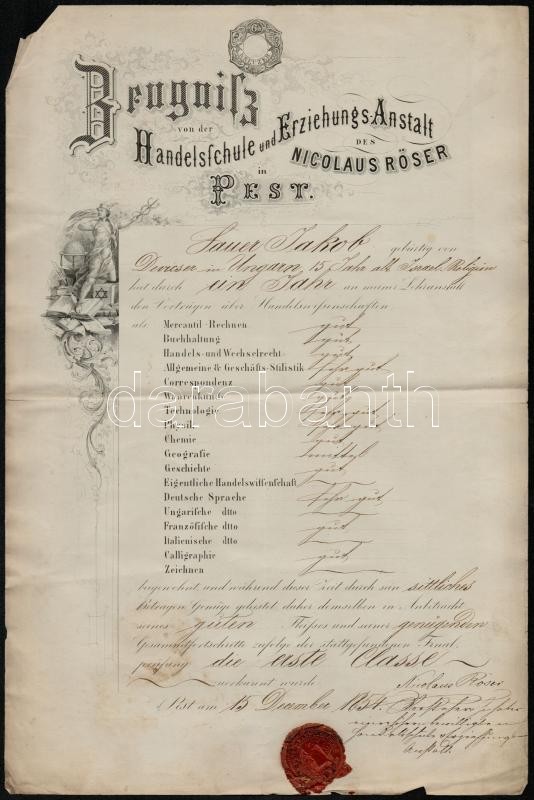 Zeugniſz
von der
Handelsſchule und Erziehungs-Anstalt
DES
NICOLAUS RÖSER
in
PEST.
Sauer Jakob gebürtig von
in Ungarn, 15 Jahr alt Israel. Religion
hat durch ein Jahr an meiner Lehranstalt
den Vorträgen über Handelswiſsenſchaften
als: Mercantil-Rechnen gut
Buchhaltung gut
Handels- und Wechselrecht gut
Allgemeine & Geschäfts-Stilistik sehr gut
Correspondenz gut
Waarenkunde gut
Technologie sehr gut
Physik sehr gut
Chemie gut
Geografie mittel
Geschichte gut
Eigentliche Handelswiſſenſchaft
Deutsche Sprache sehr gut
Ungarische dtto
Franzöſiſche dtto gut
Italienische dtto
Calligraphie gut
Zeichnen
beygewohnt und während dieser Zeit durch sein sittliches
Betragen Genüge geleistet daher demselben in Anbetracht
seines guten Fleißes und seiner genügenden
Gesammtfortschritte zufolge der stattgefundenen Final
prüfung die erste Classe
zuerkannt wurde
Nicolaus Röser
Pest am 15 December 1854.
Handelsschule u Erziehungs
Anstalt.
darabanth